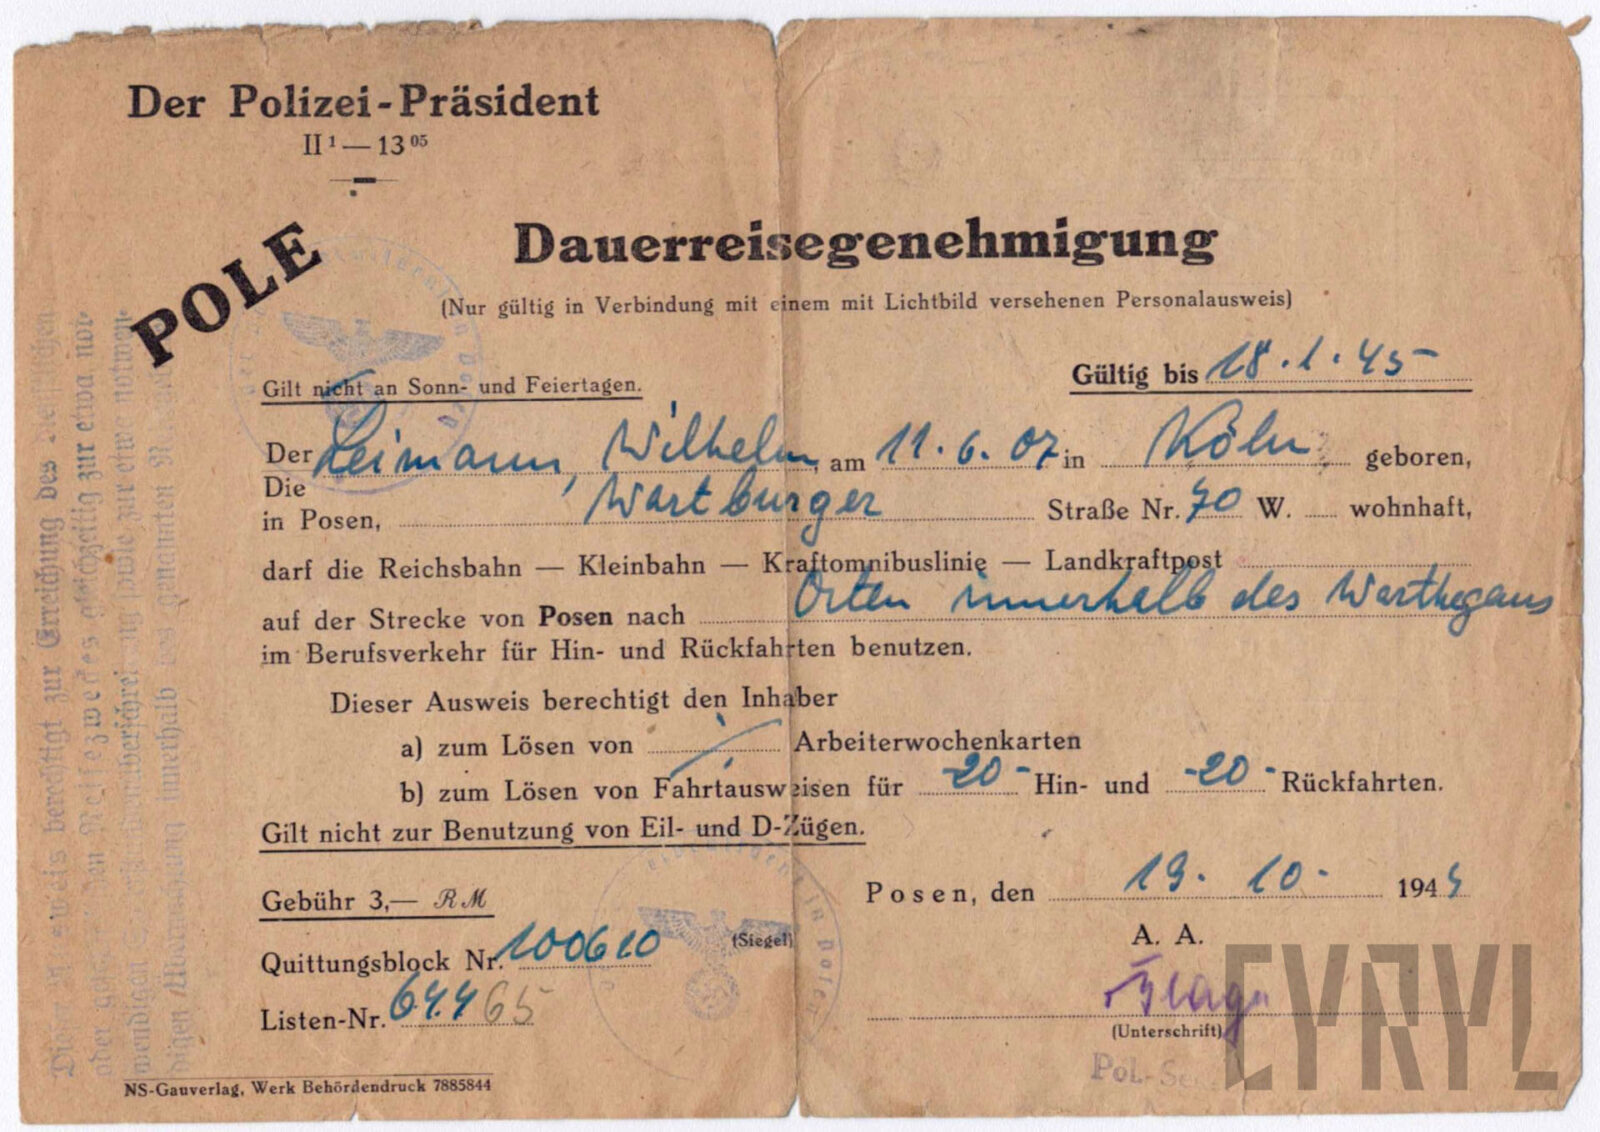 Der Polizei-Präsident
II¹ — 13⁰⁵
POLE
Dauerreisegenehmigung
(Nur gültig in Verbindung mit einem mit Lichtbild versehenen Personalausweis)
Gültig bis 18.1.45
Gilt nicht an Sonn- und Feiertagen.
Der Leimann, Wilhelm, am 11.6.07 in Köln geboren,
Die
in Posen, Wartburger Straße Nr. 70 W. wohnhaft,
darf die Reichsbahn — Kleinbahn — Kraftomnibuslinie — Landkraftpost
auf der Strecke von Posen nach Orten innerhalb des Warthegaus
im Berufsverkehr für Hin- und Rückfahrten benutzen.
Dieser Ausweis berechtigt den Inhaber
a) zum Lösen von Arbeiterwochenkarten
b) zum Lösen von Fahrtausweisen für -20- Hin- und -20- Rückfahrten.
Gilt nicht zur Benutzung von Eil- und D-Zügen.
Gebühr 3,— RM
Posen, den 19. 10. 1944
Quittungsblock Nr. 100610
(Siegel)
A. A.
Listen-Nr. 64465
(Unterschrift)
NS-Gauverlag, Werk Behördendruck 7885844
berechtigt zur Erreichung des
Reisezwecks gleichzeitig zur etwa not-
sowie zur etwa notwen-
innerhalb des genannten
CYRYL